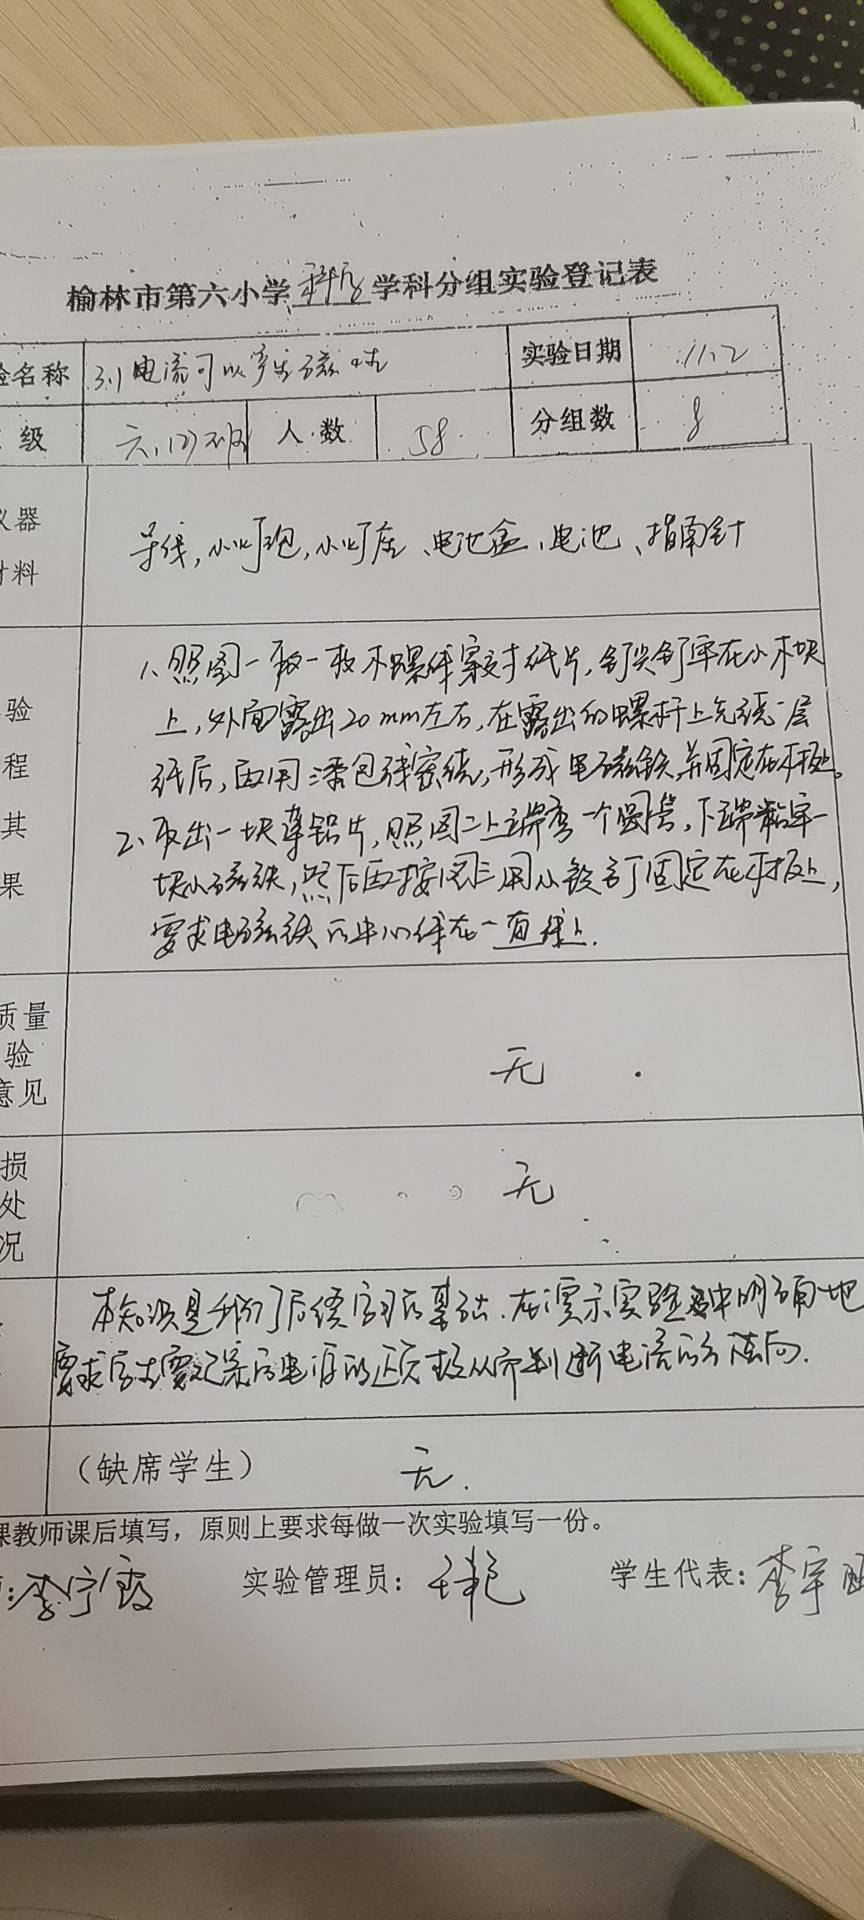 榆林市第六小学科学学科分组实验登记表
验名称 3.1电流可以产生磁性 实验日期 11.2
级 六.(2)班 人数 58 分组数 8
仪器
材料
导线,小灯泡,小灯座、电池盒、电池、指南针
验
程
其
果
1、照图一取一枚木螺钉穿过纸片,钉尖钉牢在小木块
上,外面露出20mm左右,在露出的螺杆上先绕一层
纸后,再用漆包线密绕,形成电磁铁,并固定在木板上。
2、取出一块薄铝片,照图二上端弯一个圆筒,下端粘牢一
块小磁铁,然后再按图三用小铁钉固定在木板上,
要求电磁铁的中心线在一直线上.
质量
验
意见
无
损
处
况
无
本知识是我们后续学习的基础.在演示实验中明确地
要求学生要记录的电源的正负极从而判断电流的方向.
(缺席学生) 无.
课教师课后填写,原则上要求每做一次实验填写一份。
: 李宁霞 实验管理员: 学生代表: 李宇